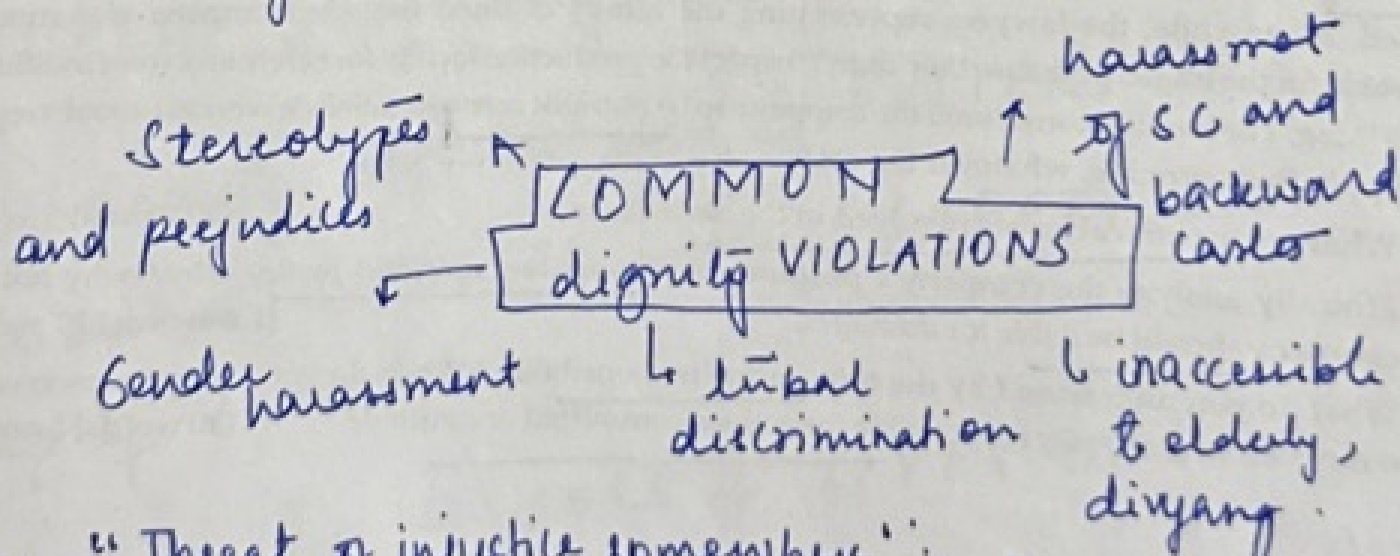 Stereotypes
and prejudices
COMMON
dignity VIOLATIONS
harassmet
of SC and
backward
castes
Gender
harassment
tribal
discrimination
inaccessible
to elderly,
divyang.
"Threat